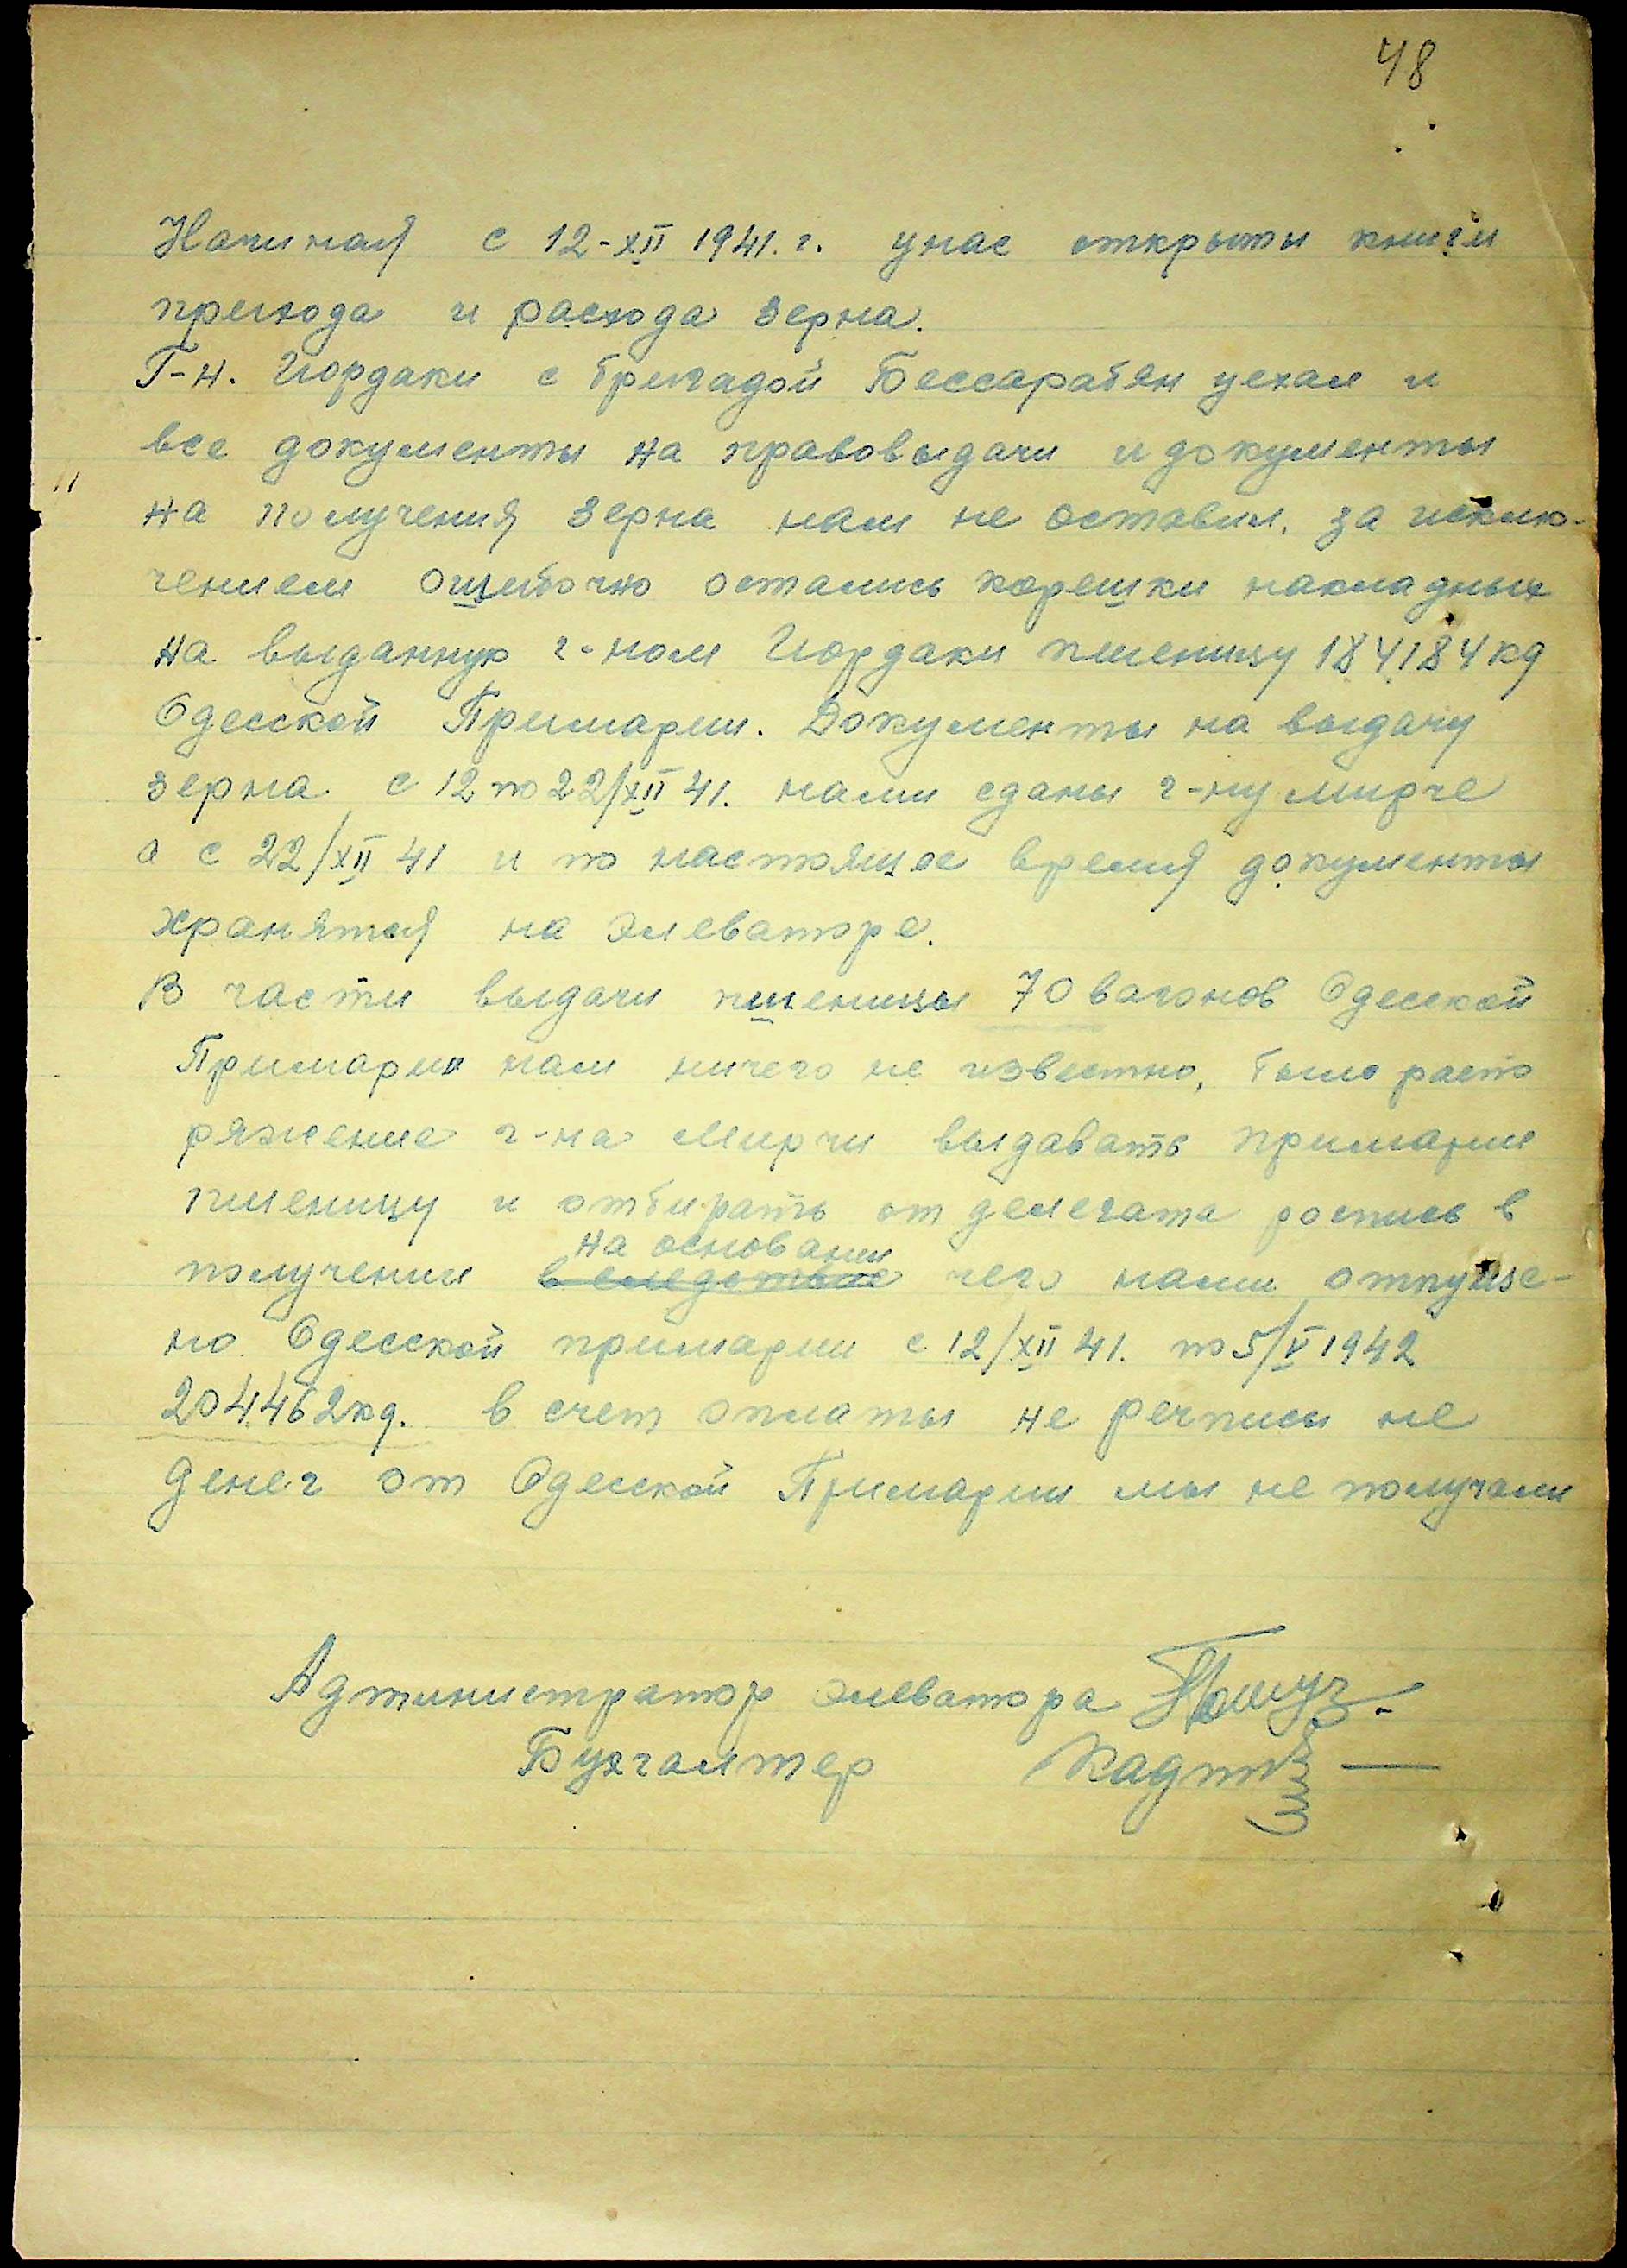 48
Начиная с 12-XII 1941.г. унас открыты книги
прихода и расхода зерна.
Г-н. Иордаки с бригадой Бессарабян уехал и
все документы на правовыдачи и документы
на получения зерна нам не оставил, за исклю-
чением ошибочно остались корешки накладных
на выданную г-ном Иордаки пшеницу 184184 кг
Одесской Примарии. Документы на выдачу
зерна с 12 по 22/XII 41. нами сданы г-ну Мирче
а с 22/XII 41 и по настоящее время документы
хранятся на элеваторе.
В части выдачи пшеницы 70 вагонов Одесской
Примарии нам ничего не известно, было распо
ряжение г-на Мирчи выдавать примарии
пшеницу и отбирать от делегата роспись в
на основании
получении в следствие чего нами отпуще-
но Одесской примарии с 12/XII 41. по 5/V 1942
204462кг. в счет оплаты не речписы не
денег от Одесской Примарии мы не получали
Администратор элеватора
Бухгалтер